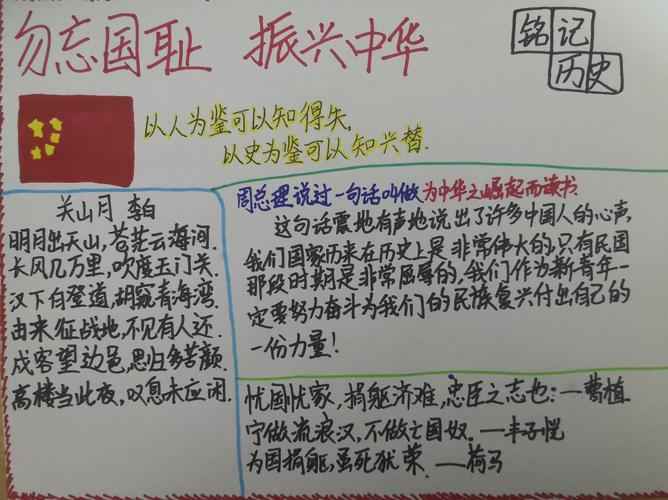 勿忘国耻 振兴中华
铭记
历史
以人为鉴可以知得失,
以史为鉴可以知兴替.
关山月 李白
明月出天山,苍茫云海间.
长风几万里,吹度玉门关.
汉下白登道,胡窥青海湾.
由来征战地,不见有人还.
戍客望边邑,思归多苦颜.
高楼当此夜,叹息未应闲.
周总理说过一句话叫做为中华之崛起而读书.
这句话震地有声地说出了许多中国人的心声,
我们国家历来在历史上是非常伟大的,只有民国
那段时期是非常屈辱的,我们作为新青年一
定要努力奋斗为我们的民族复兴付出自己的
一份力量!
忧国忧家,捐躯济难,忠臣之志也:—曹植
宁做流浪汉,不做亡国奴.—丰子恺
为国捐躯,虽死犹荣.—荷马